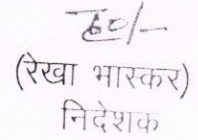 ह०/-
(रेखा भास्कर)
निदेशक